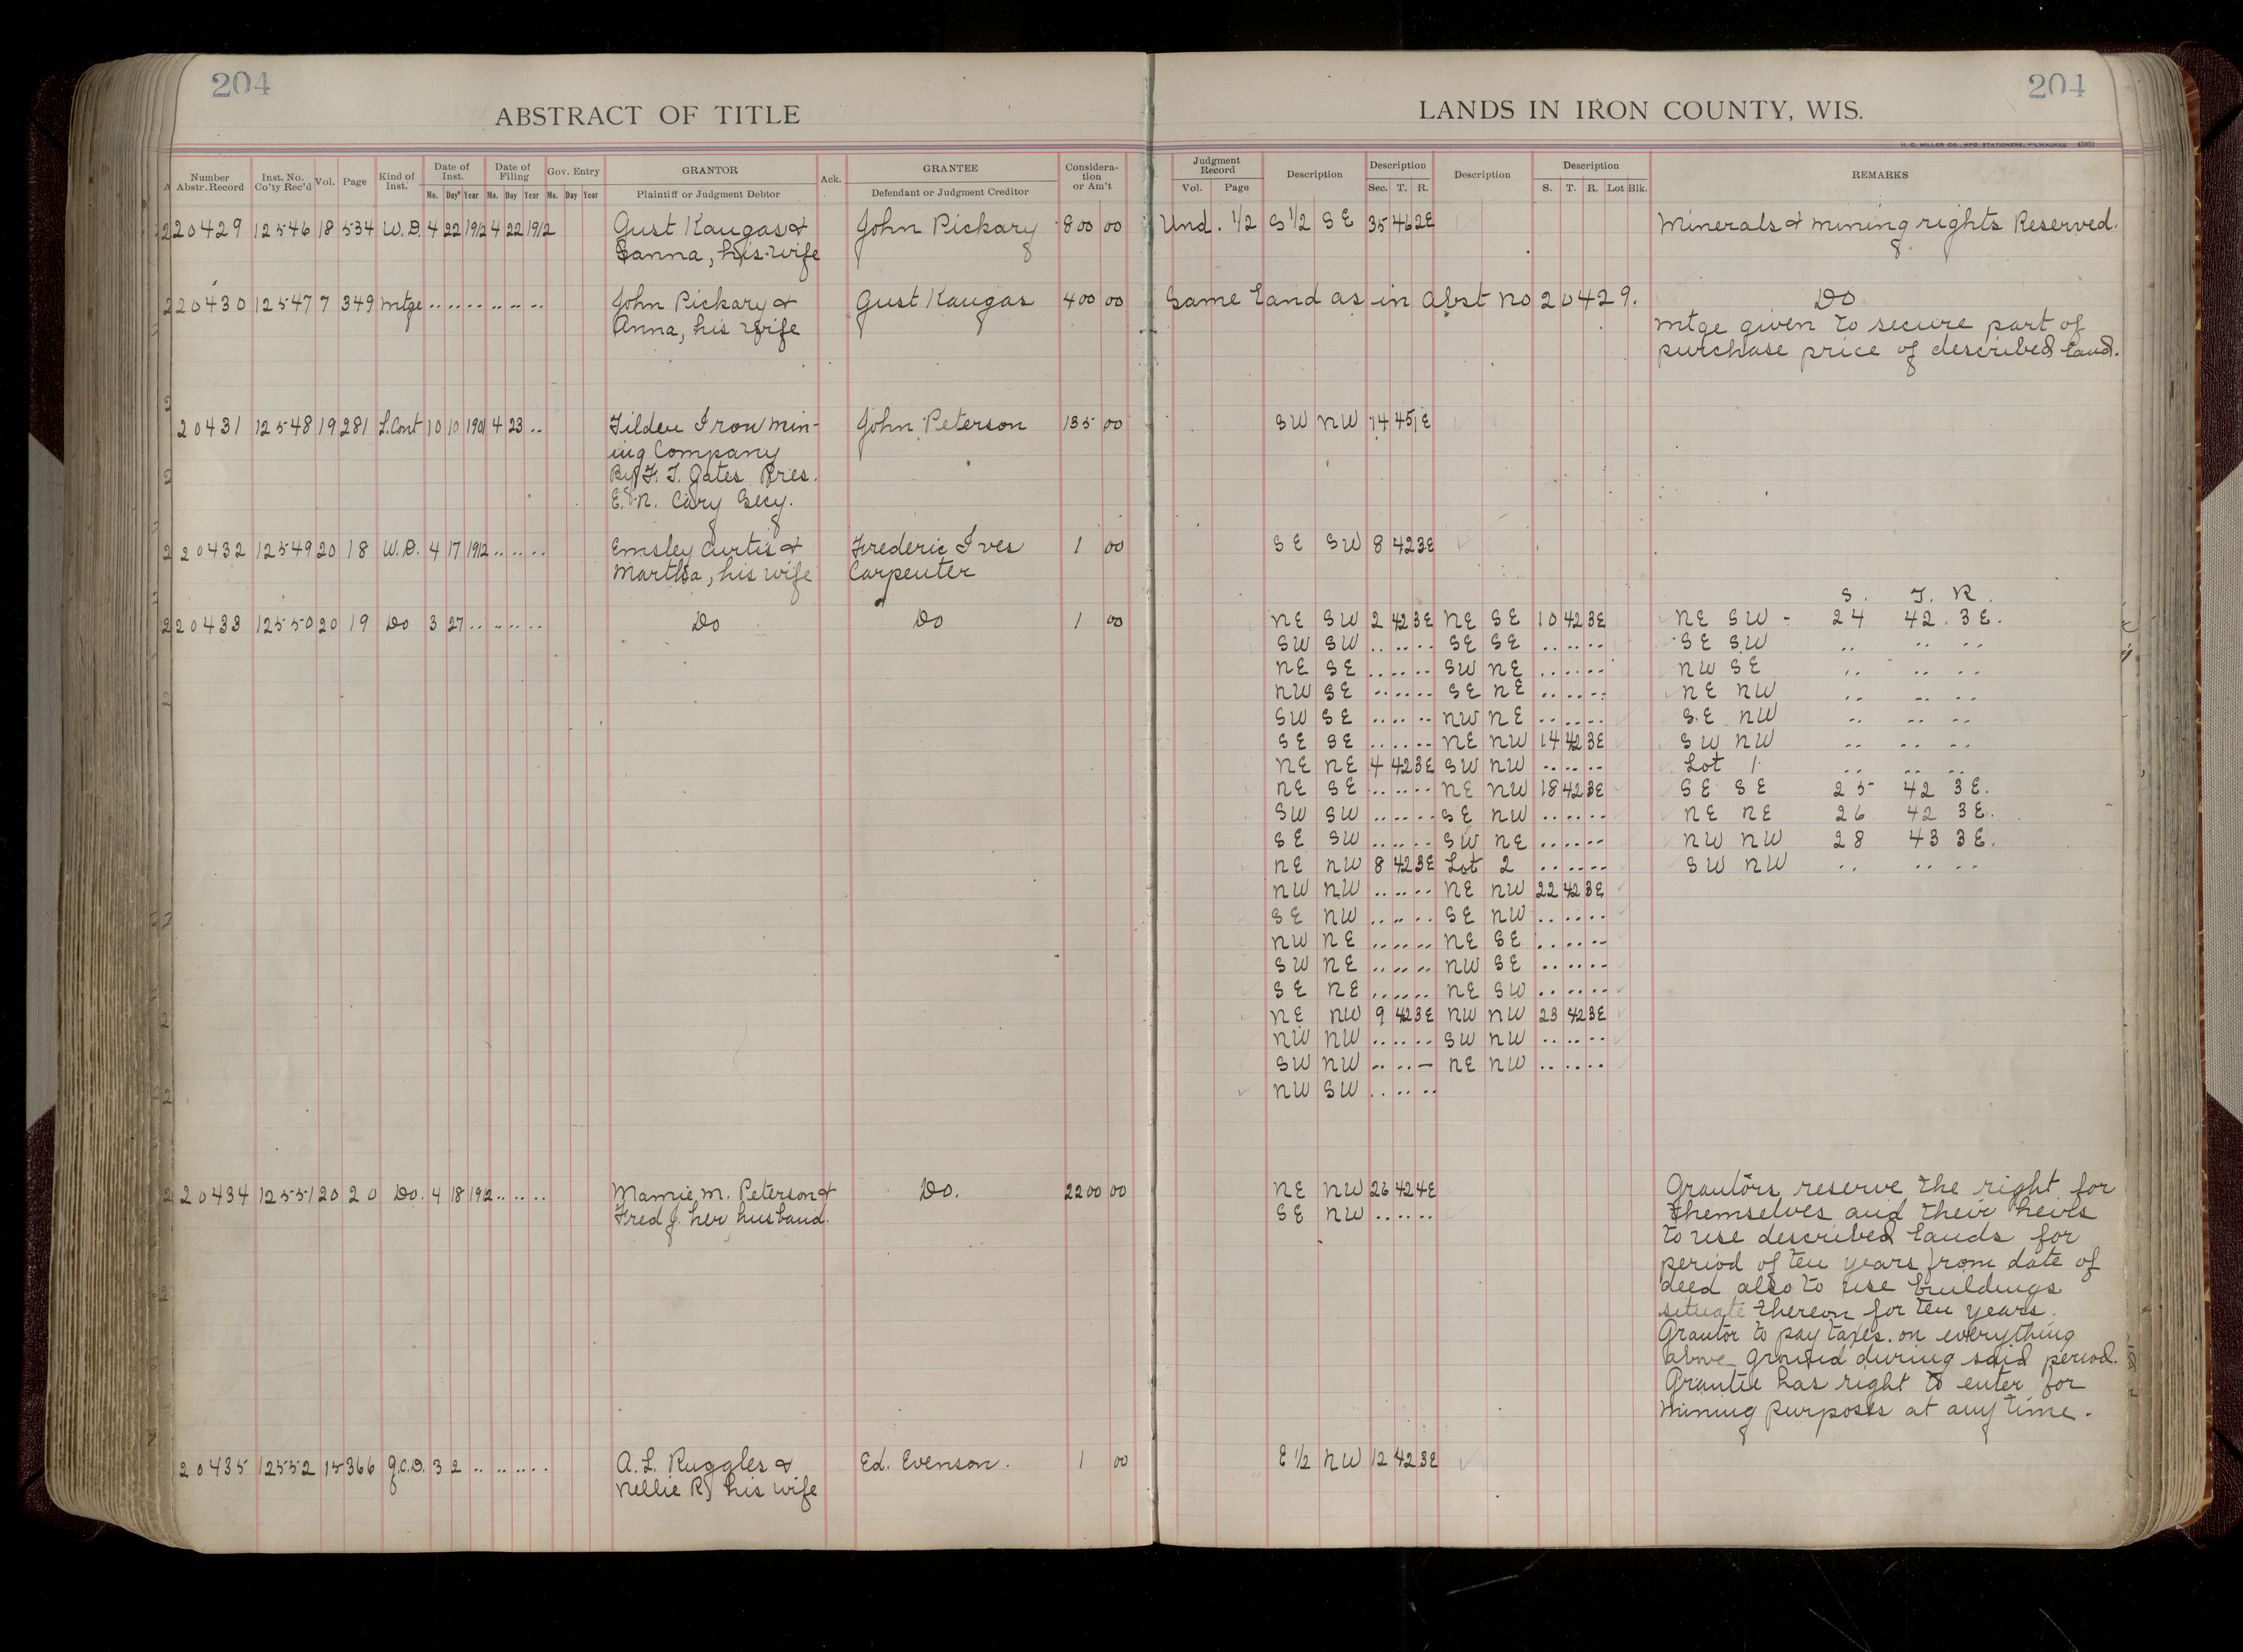 204
204
ABSTRACT OF TITLE
LANDS IN IRON COUNTY, WIS.
H. C. MILLER CO., MFG. STATIONERS, MILWAUKEE
Number Abstr. Record
Inst. No. Co'ty Rec'd
Vol.
Page
Kind of Inst.
Date of Inst. Mo. Day Year
Date of Filing Mo. Day Year
Gov. Entry Mo. Day Year
GRANTOR
Plaintiff or Judgment Debtor
Ack.
GRANTEE
Defendant or Judgment Creditor
Considera-tion or Am't
Judgment Record Vol. Page
Description
Description Sec. T. R.
Description
Description S. T. R. Lot Blk.
REMARKS
20429 12546 18 534 W.D. 4 22 1912 4 22 1912 Gust Kangas & John Pickary 800 00 Und. 1/2 S 1/2 SE 35 46 2E Minerals & mining rights Reserved.
Sanna, his wife
20430 12547 7 349 Mtge .. .. .. .. .. .. John Pickary & Gust Kangas 400 00 Same land as in Abst no 20429. Do
Anna, his wife mtge given to secure part of
purchase price of described land.
20431 12548 19 281 L.Cont 10 10 1901 4 23 .. Tilden Iron Min- John Peterson 135 00 SW NW 14 45 1E
ing Company
By F. T. Gates Pres.
E. N. Cary Secy.
20432 12549 20 18 W.D. 4 17 1912 .. .. .. Emsley Curtis & Frederic Ives 1 00 SE SW 8 42 3E
Martha, his wife Carpenter
S. T. R.
20433 12550 20 19 Do 3 27 .. .. .. .. Do Do 1 00 NE SW 2 42 3E NE SE 10 42 3E NE SW - 24 42 3E.
SW SW .. .. .. SE SE .. .. .. SE SW .. .. ..
NE SE .. .. .. SW NE .. .. .. NW SE .. .. ..
NW SE .. .. .. SE NE .. .. .. NE NW .. .. ..
SW SE .. .. .. NW NE .. .. .. SE NW .. .. ..
SE SE .. .. .. NE NW 14 42 3E SW NW .. .. ..
NE NE 4 42 3E SW NW .. .. .. Lot 1 .. .. ..
NE SE .. .. .. NE NW 18 42 3E SE SE 25 42 3E.
SW SW .. .. .. SE NW .. .. .. NE NE 26 42 3E.
SE SW .. .. .. SW NE .. .. .. NW NW 28 43 3E.
NE NW 8 42 3E Lot 2 .. .. .. SW NW .. .. ..
NW NW .. .. .. NE NW 22 42 3E
SE NW .. .. .. SE NW .. .. ..
NW NE .. .. .. NE SE .. .. ..
SW NE .. .. .. NW SE .. .. ..
SE NE .. .. .. NE SW .. .. ..
NE NW 9 42 3E NW NW 23 42 3E
NW NW .. .. .. SW NW .. .. ..
SW NW .. .. .. NE NW .. .. ..
NW SW .. .. ..
20434 12551 20 20 Do. 4 18 1912 .. .. .. Mamie M. Peterson & Do. 2200 00 NE NW 26 42 4E Grantors reserve the right for
Fred J. her husband. SE NW .. .. .. themselves and their heirs
to use described lands for
period of ten years from date of
deed also to use buildings
situate thereon for ten years.
Grantor to pay taxes on everything
above ground during said period.
Grantee has right to enter for
mining purposes at any time.
20435 12552 15 366 Q.C.D. 3 2 .. .. .. .. A. L. Ruggles & Ed. Evenson. 1 00 E 1/2 NW 12 42 3E
Nellie R, his wife